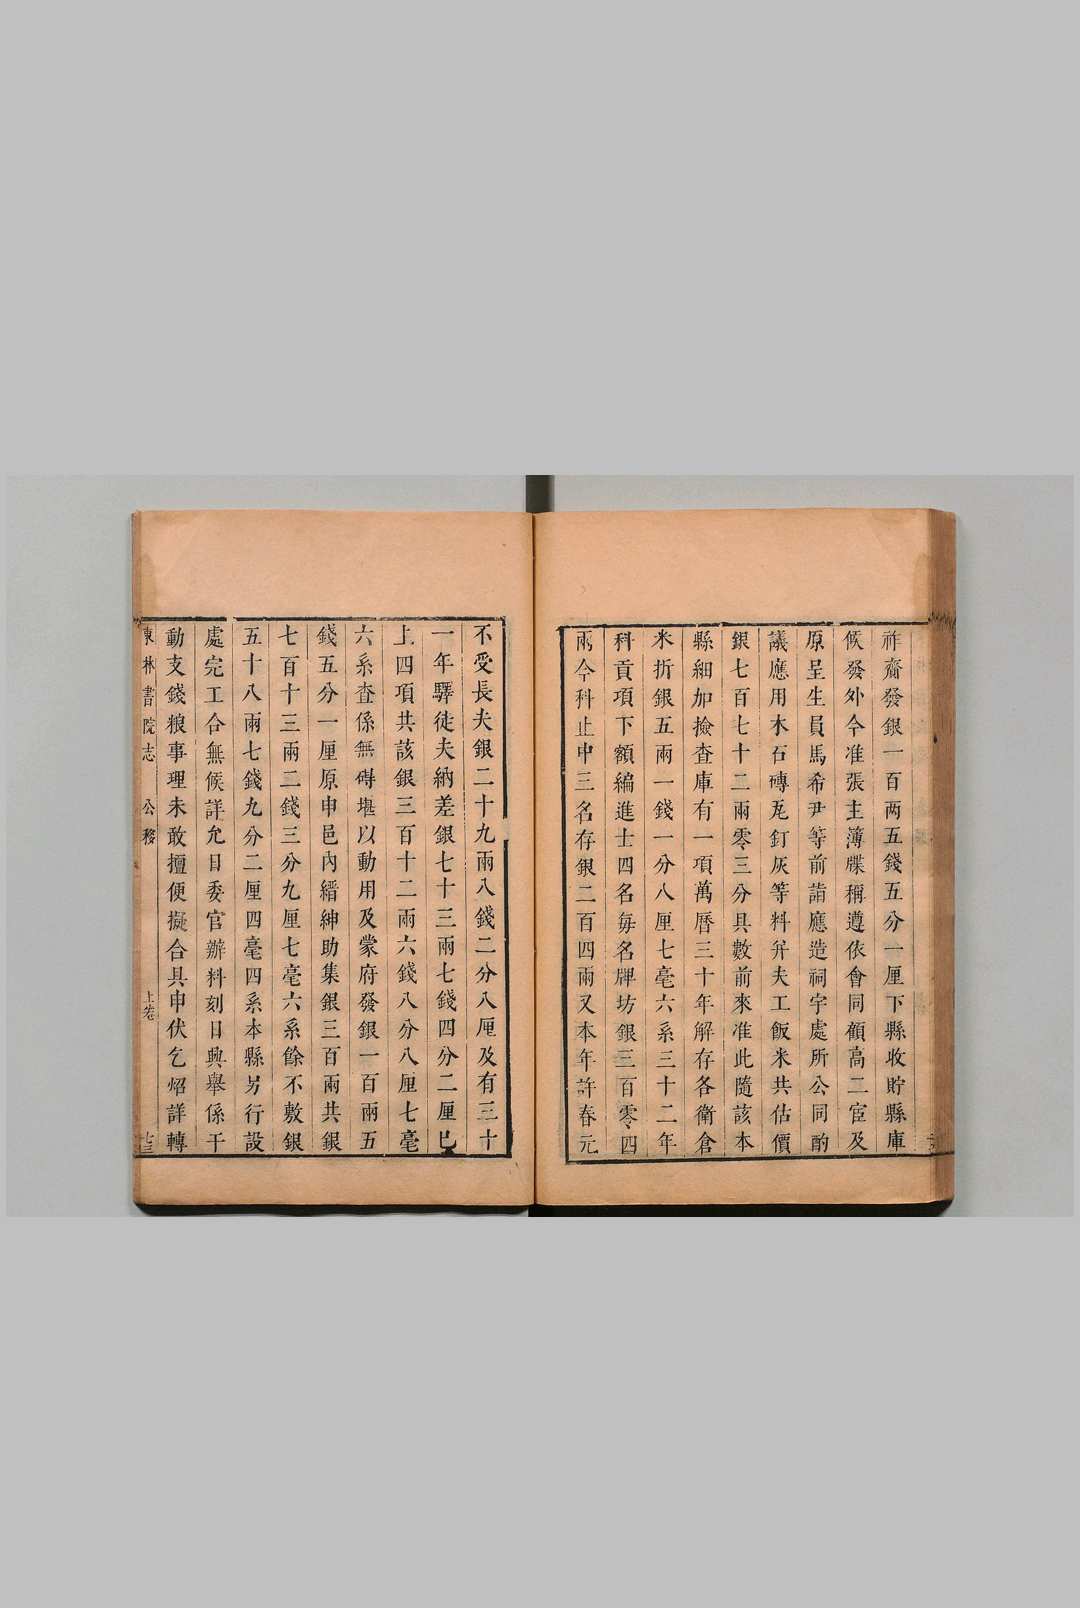 祚齋發銀一百两五錢五分一厘下縣收貯縣庫
候發外今准張主簿牒稱遵依會同顧高二宦及
原呈生員馬希尹等前詣應造祠宇處所公同酌
議應用木石磚瓦釘灰等料并夫工飯米共估價
銀七百七十二兩零三分具數前來准此隨該本
縣細加撿查庫有一項萬曆三十年解存各衛倉
米折銀五兩一錢一分八厘七毫六系三十二年
科貢項下額編進士四名每名牌坊銀三百零四
兩今科止中三名存銀二百四兩又本年許春元
不受長夫銀二十九兩八錢二分八厘及有三十
一年驛徒夫納差銀七十三兩七錢四分二厘已
上四項共該銀三百十二兩六錢八分八厘七毫
六系查係無碍堪以動用及蒙府發銀一百兩五
錢五分一厘原申邑內縉紳助集銀三百兩共銀
七百十三兩二錢三分九厘七毫六系餘不敷銀
五十八兩七錢九分二厘四毫四系本縣另行設
處完工合無候詳允日委官辦料刻日興舉係干
動支錢粮事理未敢擅便擬合具申伏乞炤詳轉
東林書院志 公移 上卷 十三